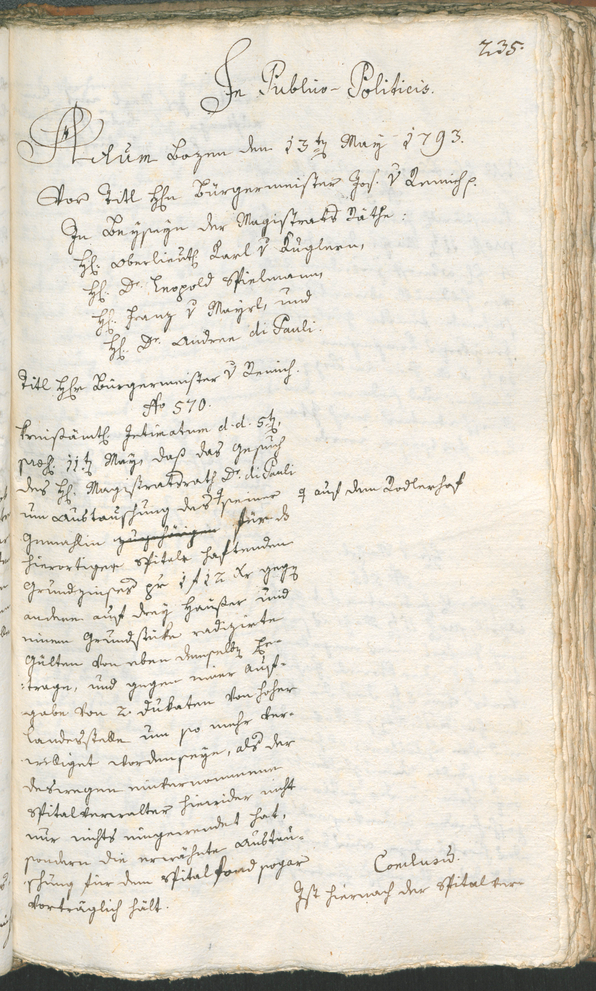 235.
In Publico-Politicis.
Actum Bozen den 13ten May 1793.
Vor Titl Hhn Bürgermeister Jos. v Remich p.
In Beyseyn der Magistrats Räthe:
Hh. Oberlieut. Karl v Kuglern,
Hh. Dr. Leopold Spielmann,
Hh. Franz v Mayrl, und
Hh. Dr. Andree di Pauli.
Titl Hhn Bürgermeister v Remich.
No 570.
Kreisämtl. Intimatum d.d. 5ten,
praes. 11ten May, daß das Gesuch
des Hh. Magistratsrath Dr. di Pauli
um Austauschung des seiner
auf dem Rodlerhof
Gemahlin für das
hierortigen Spitals haftenden
Grundzinses pr 1 f 12 Xr gegen
andere auf drey Häuser und
einem Grundstücke radizirte
Gülten von eben demselben Be-
trage, und gegen einer Auf-
gabe von 2 Dukaten von hoher
Landesstelle um so mehr ver-
williget worden seye, als der
deswegen einvernommene
Spitalverwalter hierwider nicht
nur nichts eingewendet hat,
sondern die erwähnte Austau-
schung für dem Spitalfond sogar
vorträglich hält.
Conclusum.
Ist hiernach der Spitalver-